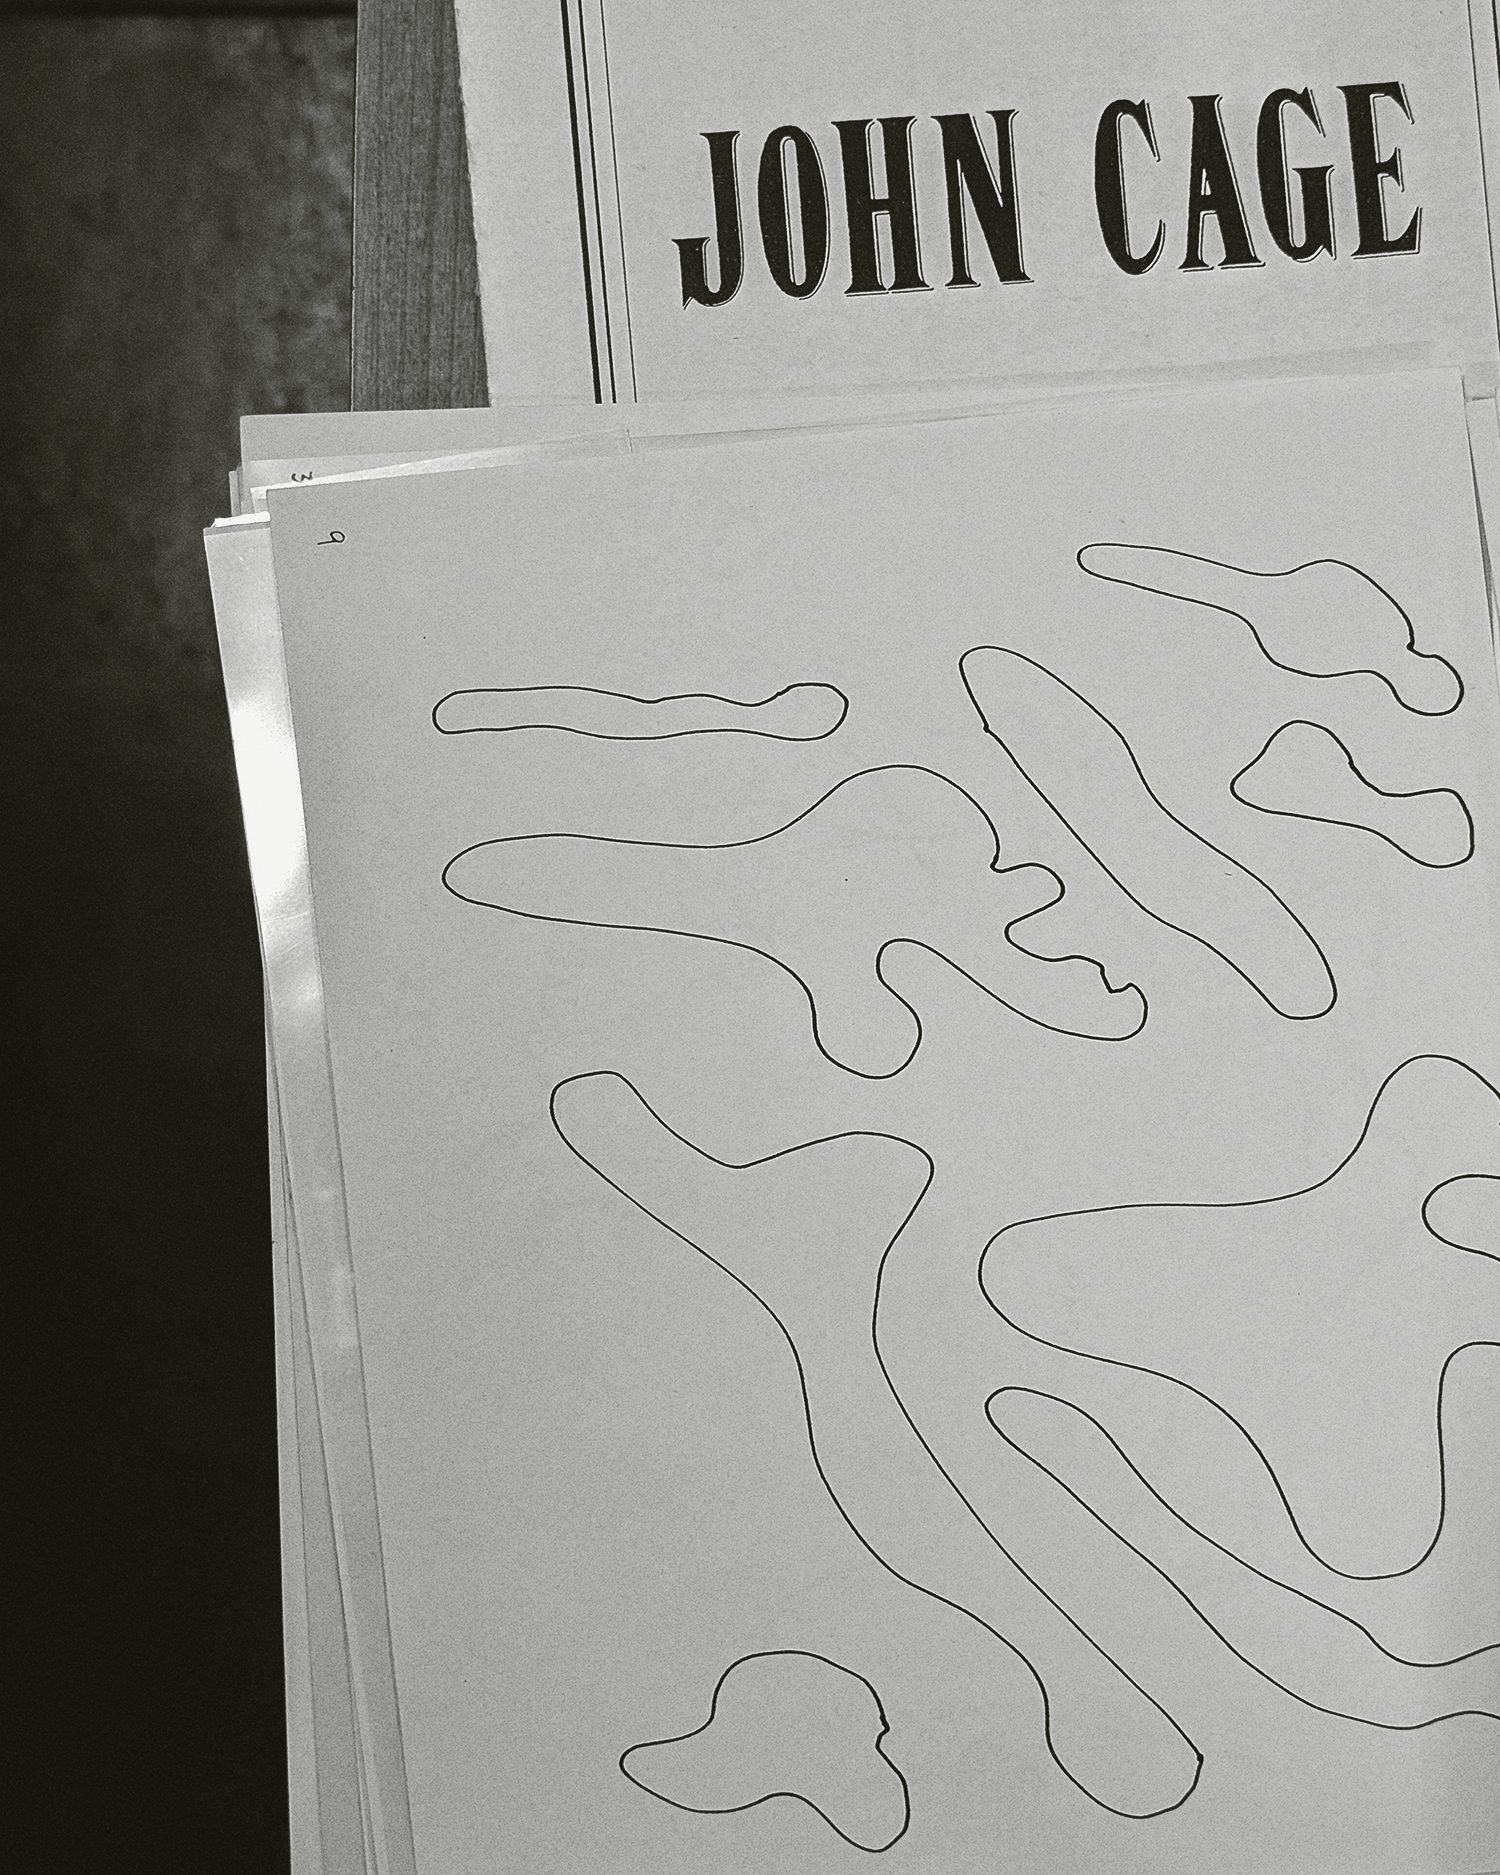 JOHN CAGE
3
9